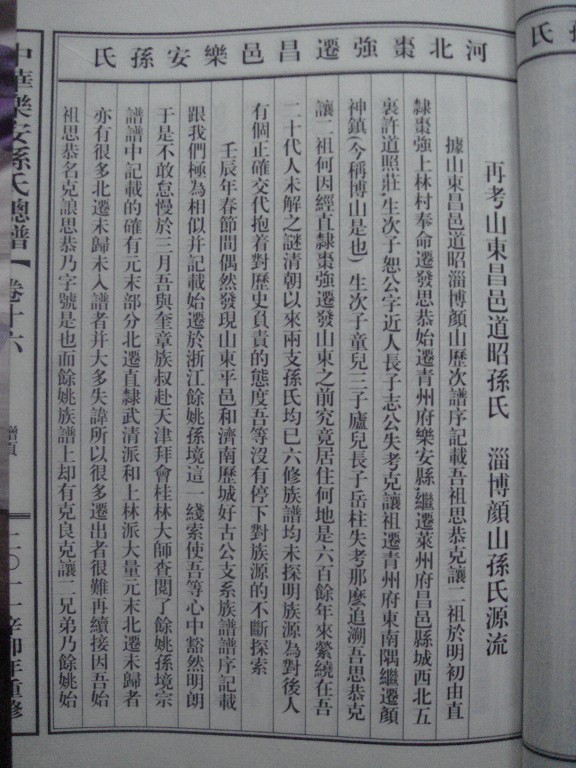 河北棗強遷昌邑樂安孫氏
再考山東昌邑道昭孫氏　淄博顏山孫氏源流
據山東昌邑道昭淄博顏山歷次譜序記載吾祖思恭克讓二祖於明初由直
隸棗強上林村奉命遷發思恭始遷青州府樂安縣繼遷萊州府昌邑縣城西北五
裏許道照莊,生次子恕公字近人長子志公失考克讓祖遷青州府東南隅繼遷顏
神鎮(今稱博山是也)生次子童兒三子廬兒長子岳柱失考那麼追溯吾思恭克
讓二祖何因經直隸棗強遷發山東之前究竟居住何地是六百餘年來縈繞在吾
二十代人未解之謎清朝以來兩支孫氏均已六修族譜均未探明族源為對後人
有個正確交代抱着對歷史負責的態度吾等沒有停下對族源的不斷探索
壬辰年春節間偶然發現山東平邑和濟南歷城好古公支系族譜譜序記載
跟我們極為相似并記載始遷於浙江餘姚孫境這一綫索使吾等心中豁然明朗
于是不敢怠慢於三月吾與奎章族叔赴天津拜會桂林大師查閱了餘姚孫境宗
譜譜中記載的確有元末部分北遷直隸武清派和上林派大量元末北遷未歸者
亦有很多北遷未歸未入譜者并大多失諱所以很多遷出者很難再續接因吾始
祖思恭名克誏思恭乃字號是也而餘姚族譜上却有克良克讓二兄弟乃餘姚始
中華樂安孫氏總譜【卷十六
二〇一一辛卯年重修
孫氏